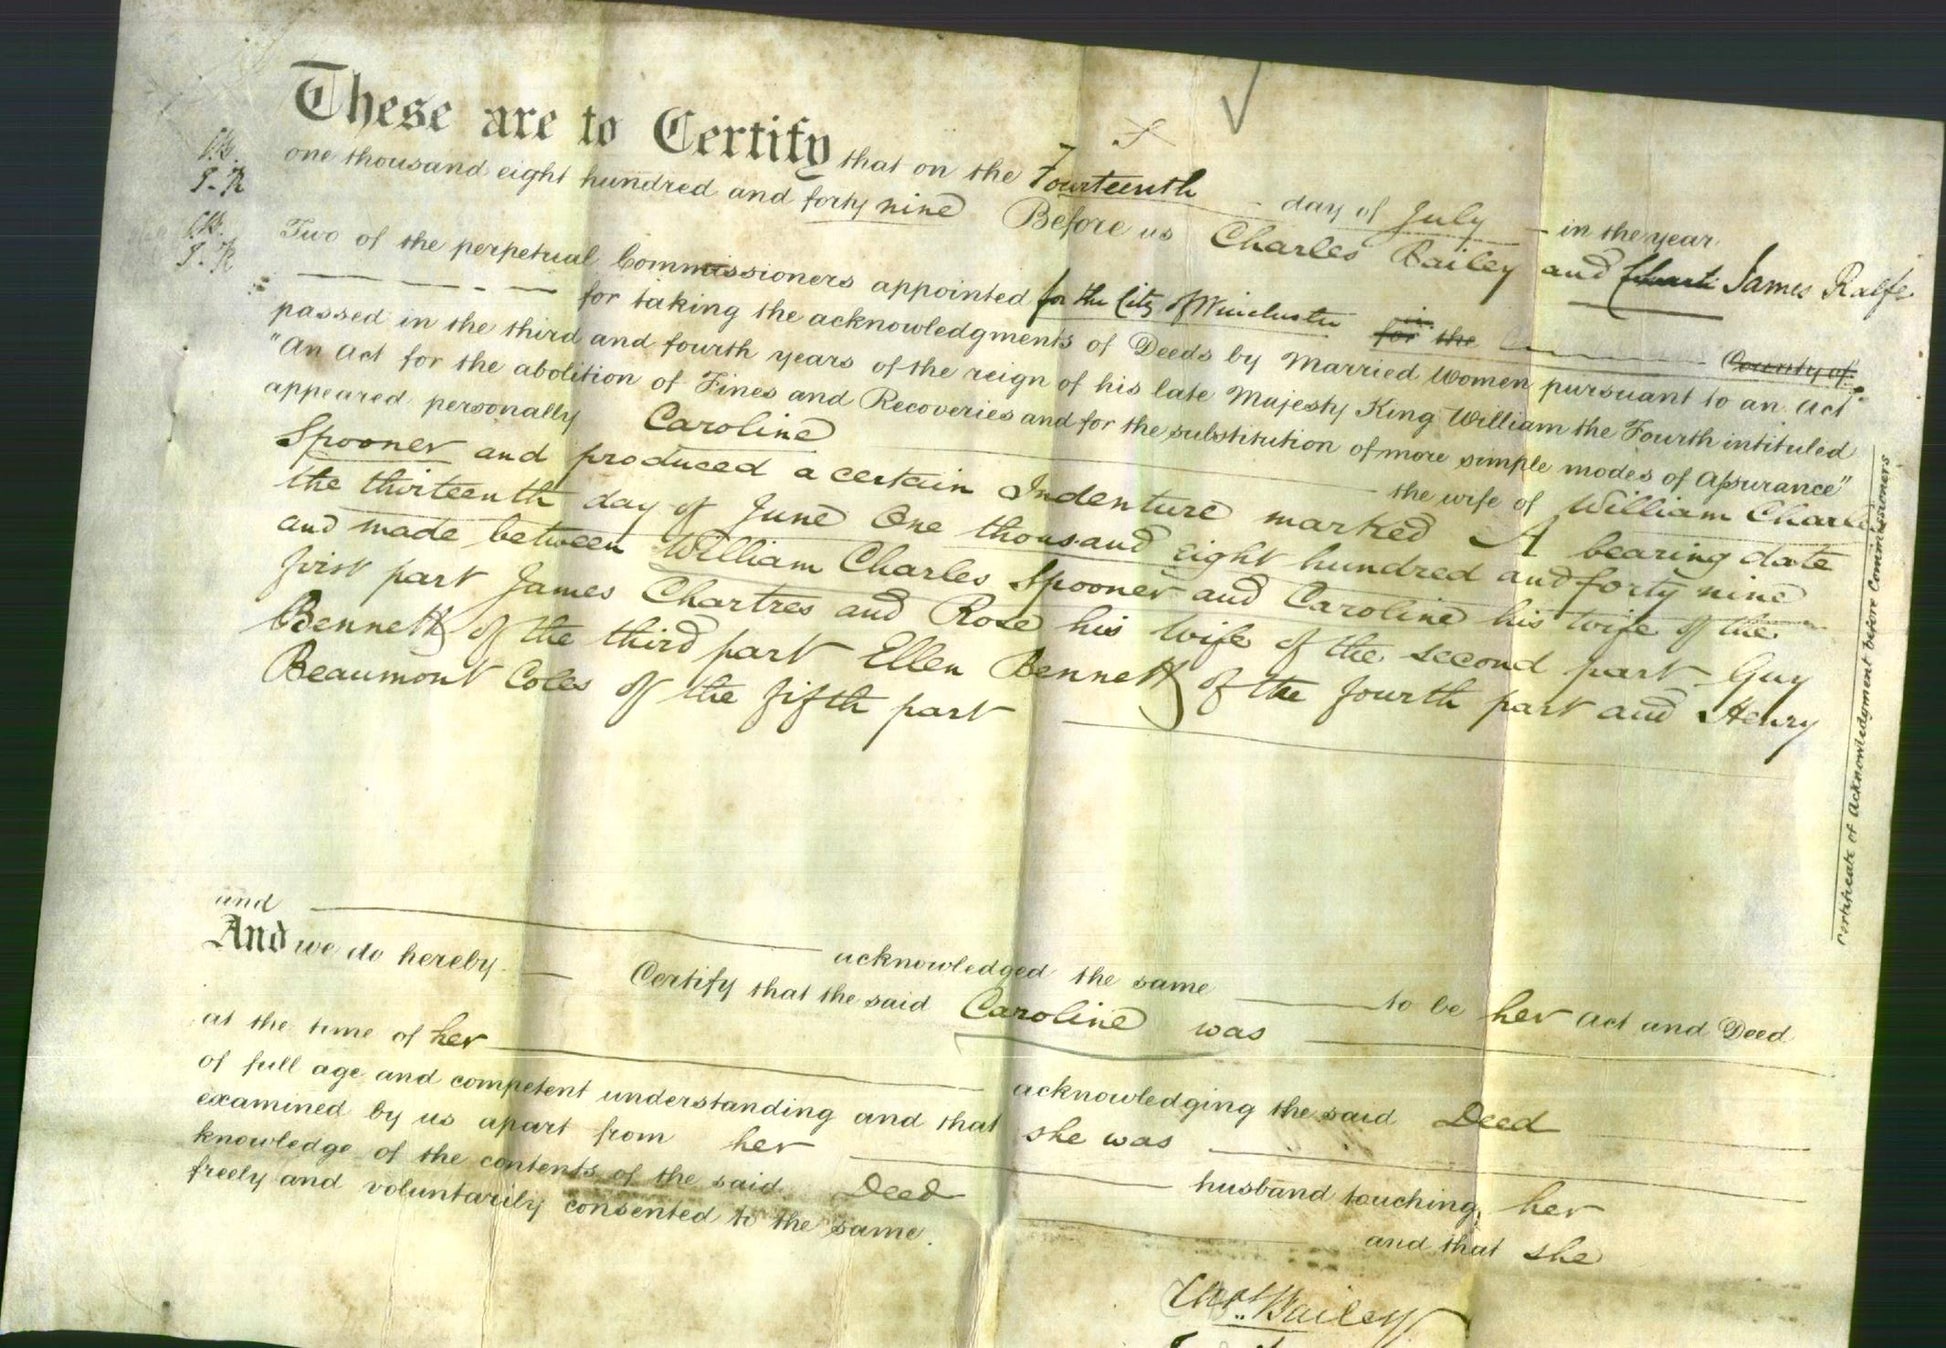 These are to Certify that on the Fourteenth day of July in the year
one thousand eight hundred and forty nine Before us Charles Bailey and James Ralfe
Two of the perpetual Commissioners appointed for the City of Winchester in for the County of
for taking the acknowledgments of Deeds by Married Women pursuant to an Act
passed in the third and fourth years of the reign of his late Majesty King William the Fourth intituled
"An Act for the abolition of Fines and Recoveries and for the substitution of more simple modes of Assurance"
appeared personally Caroline the wife of William Charles
Spooner and produced a certain Indenture marked A bearing date
the thirteenth day of June One thousand Eight hundred and forty nine
and made between William Charles Spooner and Caroline his wife of the
first part James Chartres and Rose his wife of the second part Guy
Bennett of the third part Ellen Bennett of the fourth part and Henry
Beaumont Coles of the fifth part
and acknowledged the same to be her Act and Deed
And we do hereby Certify that the said Caroline was
at the time of her acknowledging the said Deed
of full age and competent understanding and that she was
examined by us apart from her husband touching her
knowledge of the contents of the said Deed and that she
freely and voluntarily consented to the same.
Chas Bailey
J. R
J. R
Certificate of Acknowledgment before Commissioners